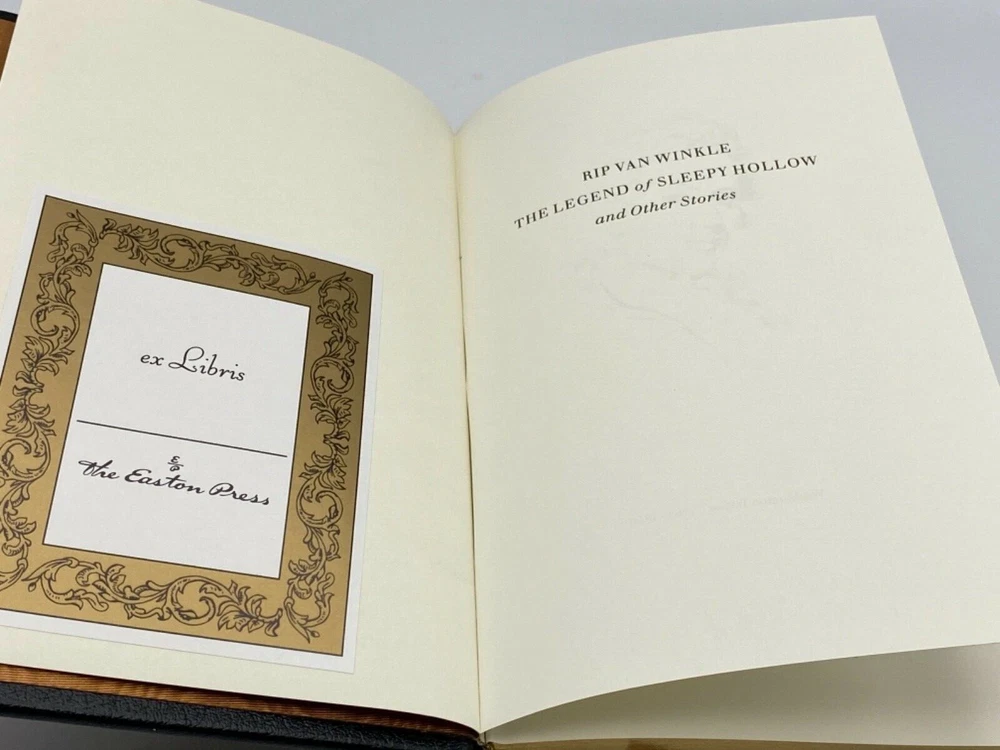 ex Libris
The Easton Press
RIP VAN WINKLE
THE LEGEND of SLEEPY HOLLOW
and Other Stories